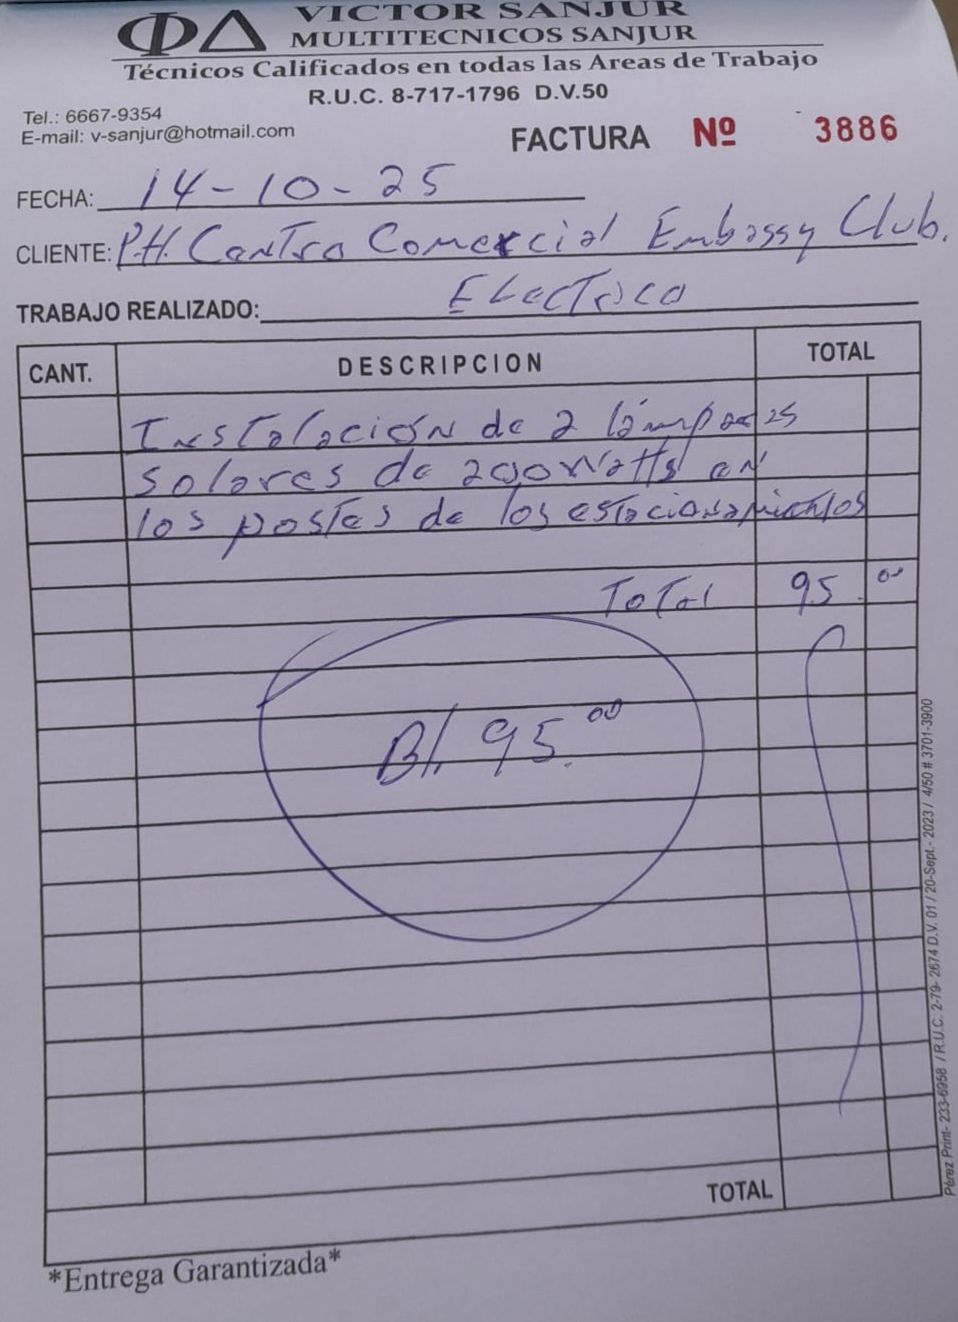 ΦΔ VICTOR SANJUR
MULTITECNICOS SANJUR
Técnicos Calificados en todas las Areas de Trabajo
R.U.C. 8-717-1796 D.V.50
Tel.: 6667-9354
E-mail: v-sanjur@hotmail.com
FACTURA Nº 3886
FECHA: 14-10-25
CLIENTE: P.H. Centro Comercial Embassy Club.
TRABAJO REALIZADO: Electrico
CANT. DESCRIPCION TOTAL
Instalación de 2 lámparas
solares de 200 Watts en
los postes de los estacionamientos
Total 95.00
B/. 95.00
TOTAL
*Entrega Garantizada*
Pérez Print- 233-6958 / R.U.C. 2-79- 2674 D.V. 01 / 20-Sept.- 2023 / 4/50 # 3701-3900